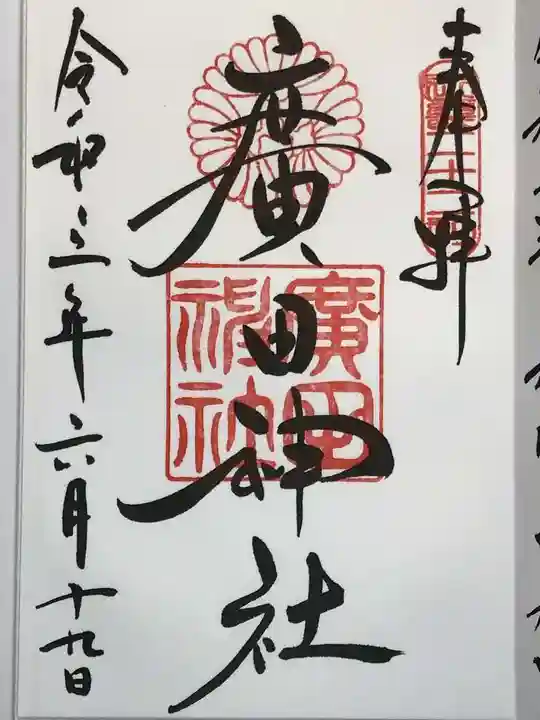 奉拝
廣田神社
廣田
神社
令和三年六月十九日